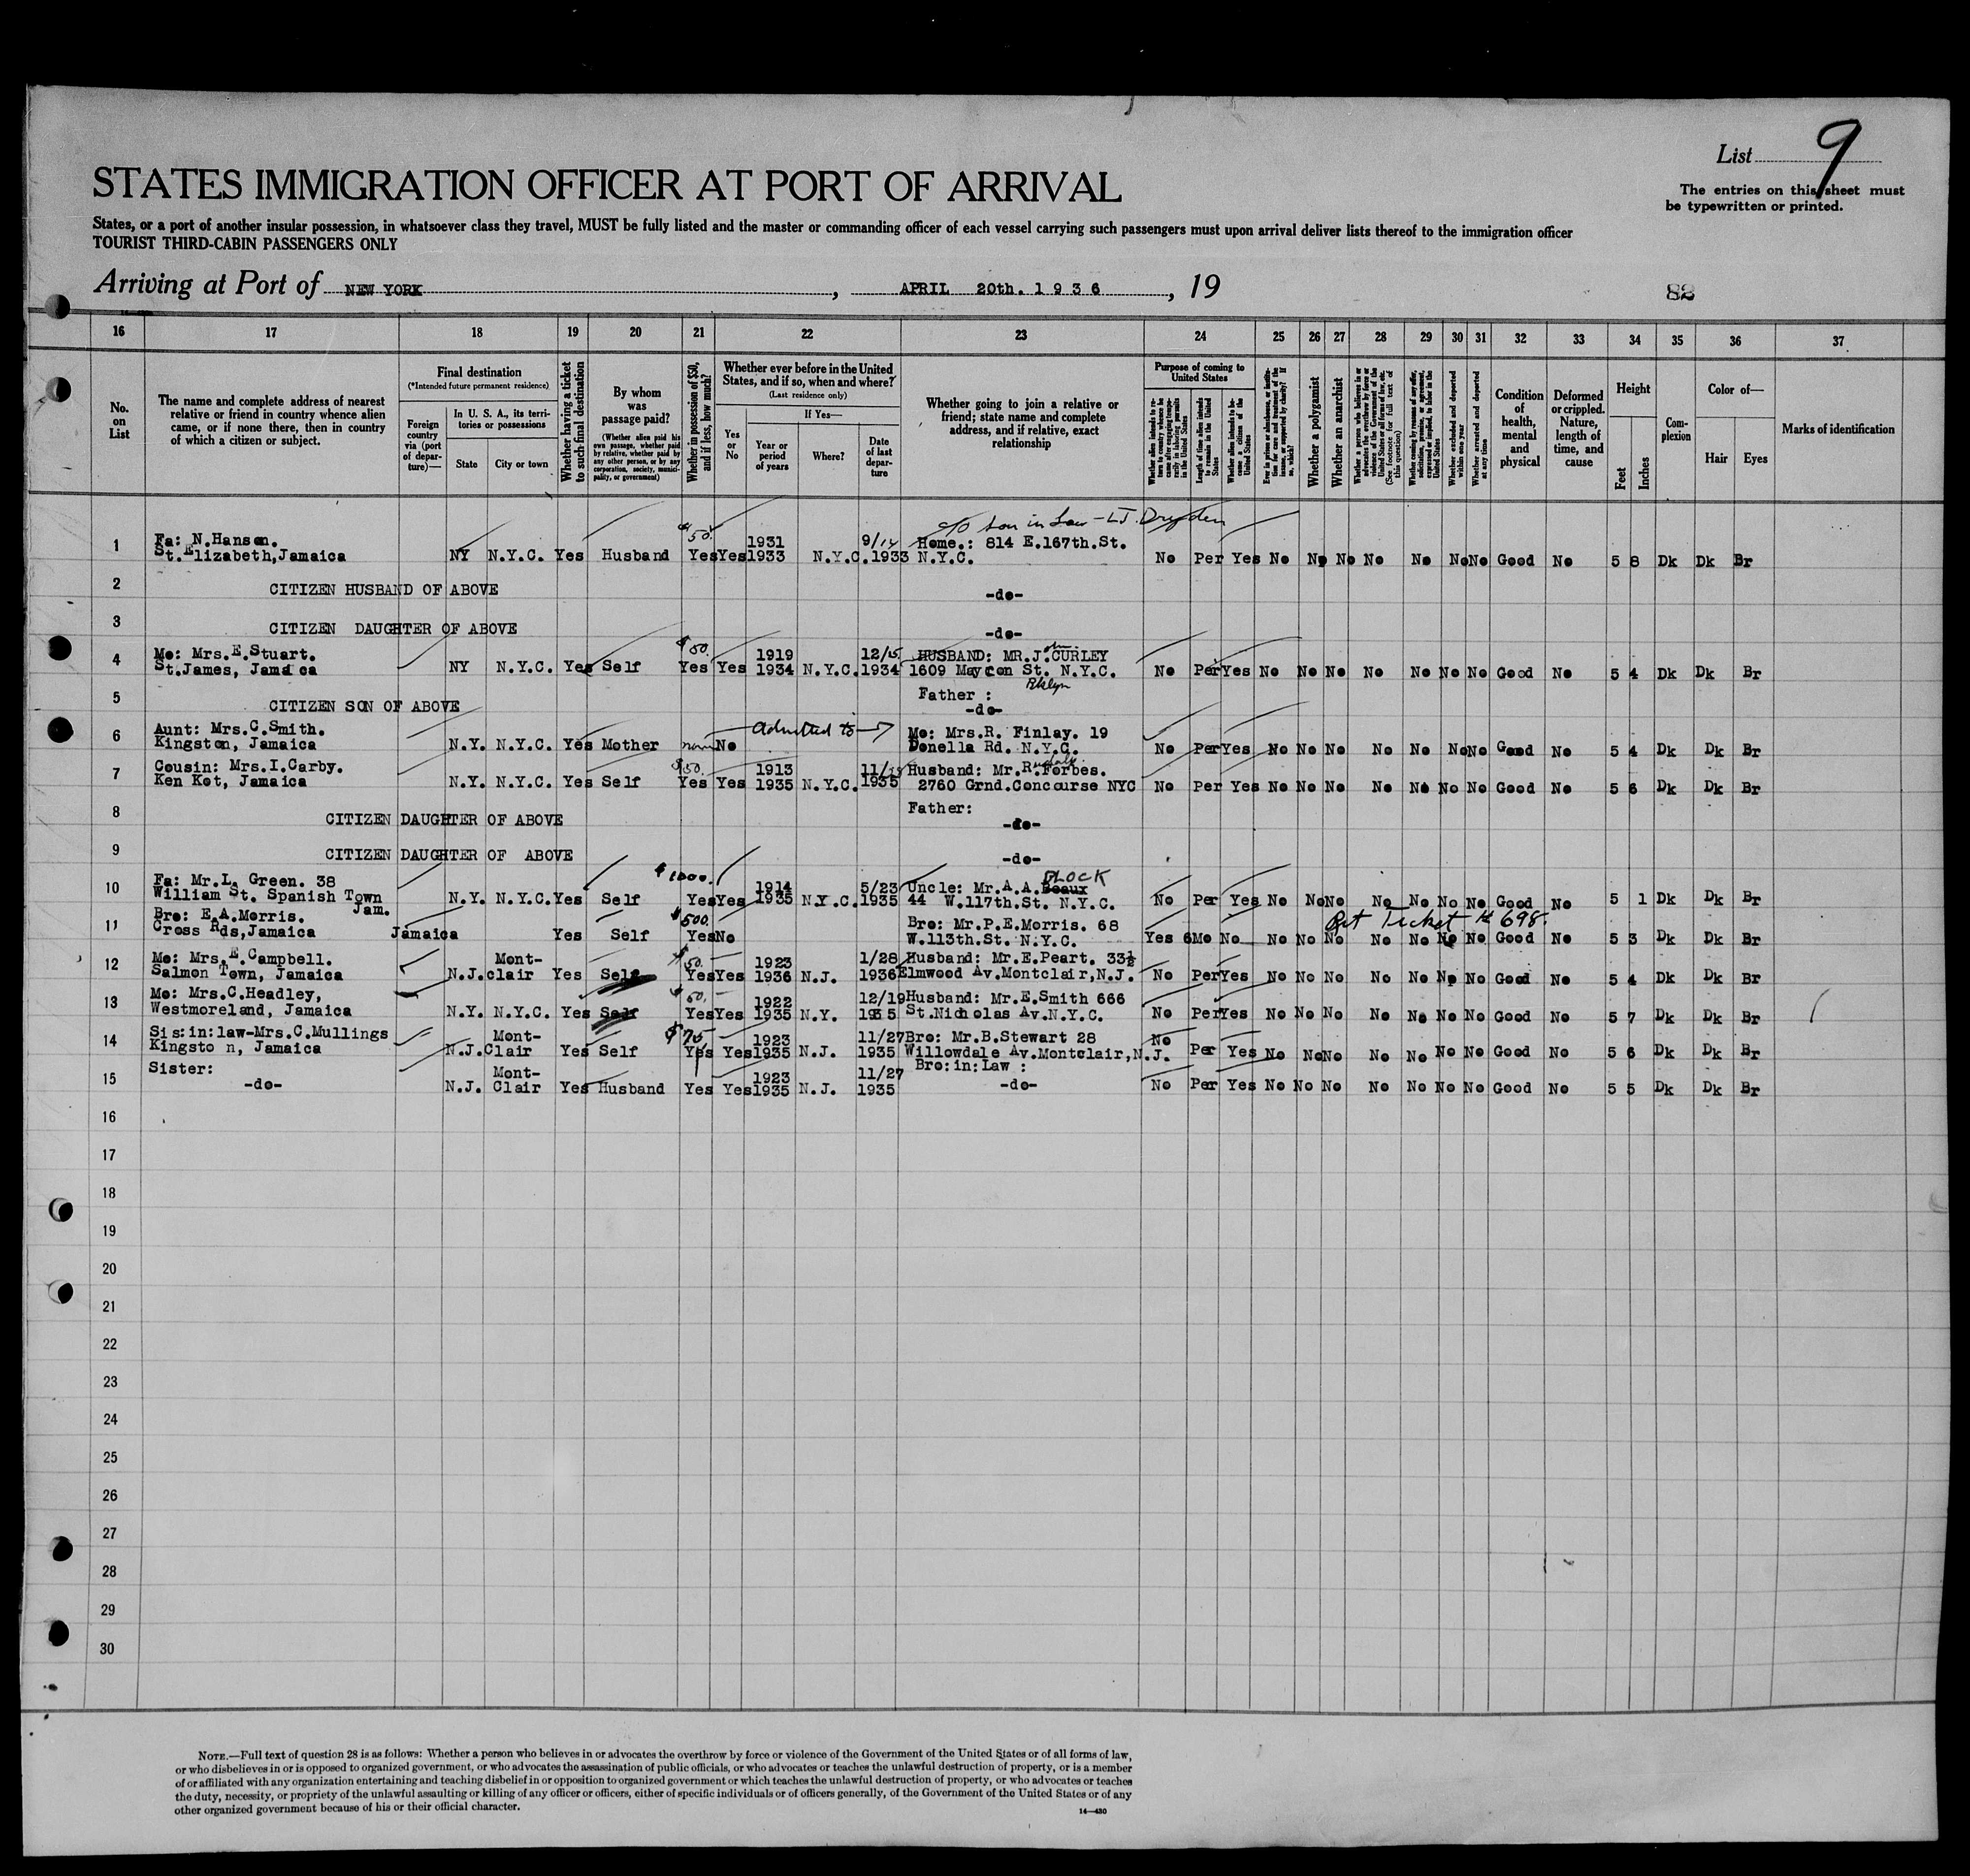 List 9
The entries on this sheet must
be typewritten or printed.
STATES IMMIGRATION OFFICER AT PORT OF ARRIVAL
States, or a port of another insular possession, in whatsoever class they travel, MUST be fully listed and the master or commanding officer of each vessel carrying such passengers must upon arrival deliver lists thereof to the immigration officer
TOURIST THIRD-CABIN PASSENGERS ONLY
Arriving at Port of NEW YORK, APRIL 20th. 1936, 19
82
16 17 18 19 20 21 22 23 24 25 26 27 28 29 30 31 32 33 34 35 36 37
No. on List
The name and complete address of nearest relative or friend in country whence alien came, or if none there, then in country of which a citizen or subject.
Final destination
(*Intended future permanent residence)
Foreign country via (port of departure)—
In U. S. A., its territories or possessions
State
City or town
Whether having a ticket to such final destination
By whom was passage paid?
(Whether alien paid his own passage, whether paid by relative, whether paid by any other person, or by any corporation, society, municipality, or government)
Whether in possession of $50, and if less, how much?
Whether ever before in the United States, and if so, when and where?
(Last residence only)
Yes or No
If Yes—
Year or period of years
Where?
Date of last departure
Whether going to join a relative or friend; state name and complete address, and if relative, exact relationship
Purpose of coming to United States
Whether alien intends to return to country whence he came after engaging temporarily in laboring pursuits in the United States
Length of time alien intends to remain in the United States
Whether alien intends to become a citizen of the United States
Ever in prison or almshouse, or institution for care and treatment of the insane, or supported by charity? If so, which?
Whether a polygamist
Whether an anarchist
Whether a person who believes in or advocates the overthrow by force or violence of the Government of the United States or all forms of law, etc. (See footnote for full text of this question)
Whether coming by reason of any offer, solicitation, promise, or agreement, expressed or implied, to labor in the United States
Whether excluded and deported within one year
Whether arrested and deported at any time
Condition of health, mental and physical
Deformed or crippled. Nature, length of time, and cause
Height
Feet
Inches
Complexion
Color of—
Hair
Eyes
Marks of identification
c/o son in law - L.J. Dryden
1 Fa: N.Hanson. $50. 1931 9/14 Home.: 814 E.167th.St.
St.Elizabeth,Jamaica NY N.Y.C. Yes Husband Yes Yes 1933 N.Y.C. 1933 N.Y.C. No Per Yes No No No No No No No Good No 5 8 Dk Dk Br
2 CITIZEN HUSBAND OF ABOVE -do-
3 CITIZEN DAUGHTER OF ABOVE -do-
4 Mo: Mrs.E.Stuart. $50. 1919 12/15 HUSBAND: MR.J.ohn CURLEY
St.James, Jamaica NY N.Y.C. Yes Self Yes Yes 1934 N.Y.C. 1934 1609 Maycon St. N.Y.C. No Per Yes No No No No No No No Good No 5 4 Dk Dk Br
Bklyn
5 CITIZEN SON OF ABOVE Father :
-do-
6 Aunt: Mrs.C.Smith. Admitted to Mo: Mrs.R. Finlay. 19
Kingston, Jamaica N.Y. N.Y.C. Yes Mother none No Donella Rd. N.Y.C. No Per Yes No No No No No No No Good No 5 4 Dk Dk Br
7 Cousin: Mrs.I.Carby. $50. 1913 11/ Husband: Mr.R.Forbes.
Ken Kot, Jamaica N.Y. N.Y.C. Yes Self Yes Yes 1935 N.Y.C. 1935 2760 Grnd.Concourse NYC No Per Yes No No No No No No No Good No 5 6 Dk Dk Br
8 CITIZEN DAUGHTER OF ABOVE Father:
-do-
9 CITIZEN DAUGHTER OF ABOVE -do-
10 Fa: Mr.L. Green. 38 $1000. 1914 5/23 Uncle: Mr.A.A.Beaux BLOCK
William St. Spanish Town Jam. N.Y. N.Y.C. Yes Self Yes Yes 1935 N.Y.C. 1935 44 W.117th.St. N.Y.C. No Per Yes No No No No No No No Good No 5 1 Dk Dk Br
Ret Ticket # 698.
11 Bro: E.A.Morris. $500. Bro: Mr.P.E.Morris. 68
Cross Rds,Jamaica Jamaica Yes Self Yes No W.113th.St. N.Y.C. Yes 6Mo No No No No No No No No Good No 5 3 Dk Dk Br
12 Mo: Mrs.E.Campbell. Mont- $50. 1923 1/28 Husband: Mr.E.Peart. 33½
Salmon Town, Jamaica N.J. clair Yes Self Yes Yes 1936 N.J. 1936 Elmwood Av.Montclair,N.J. No Per Yes No No No No No No No Good No 5 4 Dk Dk Br
13 Mo: Mrs.C.Headley, $50. 1922 12/19 Husband: Mr.E.Smith 666
Westmoreland, Jamaica N.Y. N.Y.C. Yes Self Yes Yes 1935 N.Y. 1935 St.Nicholas Av.N.Y.C. No Per Yes No No No No No No No Good No 5 7 Dk Dk Br
14 Sis:in:law-Mrs.C.Mullings Mont- $75 1923 11/27 Bro: Mr.B.Stewart 28
Kingston, Jamaica N.J. Clair Yes Self Yes Yes 1935 N.J. 1935 Willowdale Av.Montclair,N.J. No Per Yes No No No No No No No Good No 5 6 Dk Dk Br
15 Sister: Mont- 1923 11/27 Bro:in:Law :
-do- N.J. Clair Yes Husband Yes Yes 1935 N.J. 1935 -do- No Per Yes No No No No No No No Good No 5 5 Dk Dk Br
16
17
18
19
20
21
22
23
24
25
26
27
28
29
30
NOTE.—Full text of question 28 is as follows: Whether a person who believes in or advocates the overthrow by force or violence of the Government of the United States or of all forms of law,
or who disbelieves in or is opposed to organized government, or who advocates the assassination of public officials, or who advocates or teaches the unlawful destruction of property, or is a member
of or affiliated with any organization entertaining and teaching disbelief in or opposition to organized government or which teaches the unlawful destruction of property, or who advocates or teaches
the duty, necessity, or propriety of the unlawful assaulting or killing of any officer or officers, either of specific individuals or of officers generally, of the Government of the United States or of any
other organized government because of his or their official character.
14—430